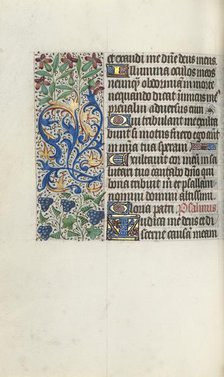 et exaudi me dñe deus meus.
Illumina oculos meos
ne unq̃ obdormiam in morte
nequando dicat inimicus
meus preualui aduersus eum
Qui tribulant me exulta
bunt si motus fuero ego aũ
in mĩa tua speraui
Exultauit cor meũ in sa
lutari tuo cantabo dño qui
bona tribuit m̃ et psallam
nomini domini altissimi
Gloria patri. Psalmus
Iudica me deus et di
scerne causam meam